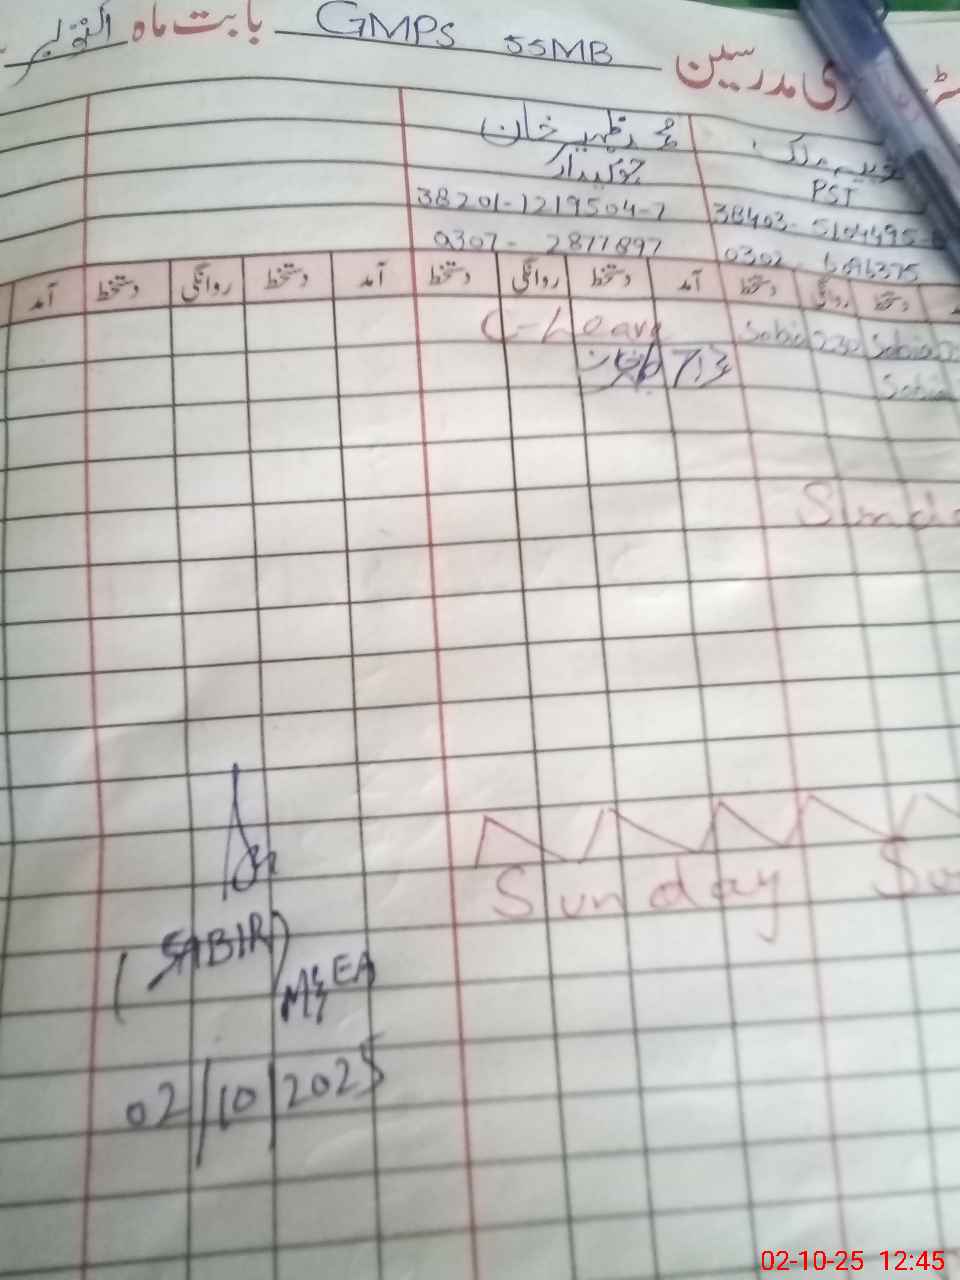 رجسٹر حاضری مدرسین GMPS 55MB بابت ماہ اکتوبر
محمد ظہیر خان
چوکیدار PST
38201-1219504-7
0307-2877897 0302-
آمد دستخط روانگی دستخط آمد دستخط روانگی دستخط آمد دستخط روانگی دستخط
C-Leave Sabia 230 Sabia
Sunday
(SABIR)
M&EA
02/10/2025
02-10-25 12:45